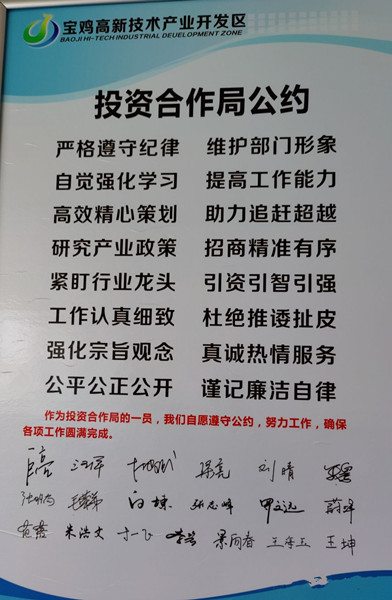 宝鸡高新技术产业开发区
BAOJI HI-TECH INDUSTRIAL DEVELOPMENT ZONE
投资合作局公约
严格遵守纪律 维护部门形象
自觉强化学习 提高工作能力
高效精心策划 助力追赶超越
研究产业政策 招商精准有序
紧盯行业龙头 引资引智引强
工作认真细致 杜绝推诿扯皮
强化宗旨观念 真诚热情服务
公平公正公开 谨记廉洁自律
作为投资合作局的一员，我们自愿遵守公约，努力工作，确保
各项工作圆满完成。
刘晴
白栋
朱浩文 王坤